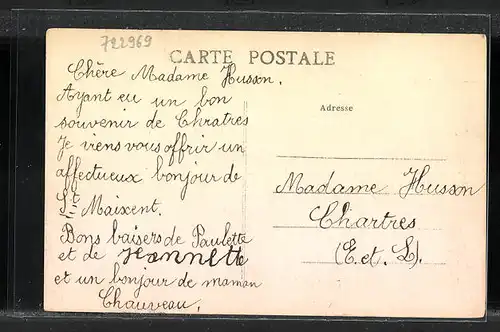 722969
CARTE POSTALE
Chère Madame Husson.
Ayant eu un bon
souvenir de Chratres
Je viens vous offrir un
affectueux bonjour de
St Maixent.
Bons baisers de Paulette
et de Jeannette
et un bonjour de maman
Chauveau.
Adresse
Madame Husson
Chartres
(E.et.L).